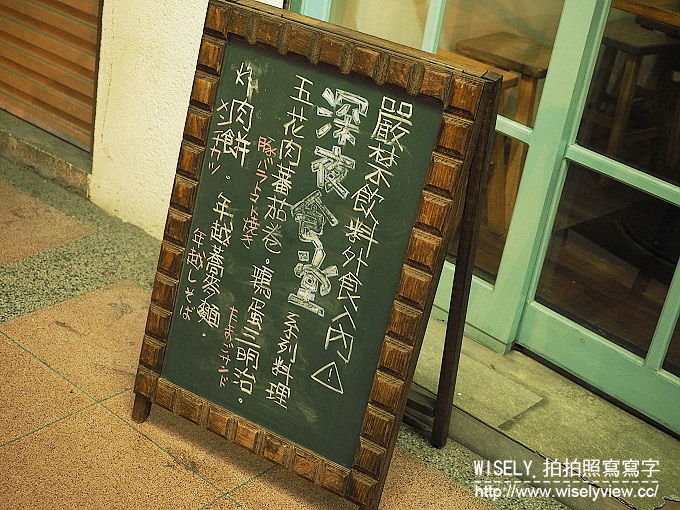 嚴禁飲料外食入內⚠
深夜食堂 系列料理
五花肉蕃茄卷。鷄蛋三明治。
豚バラトマト焼き たまごサンド
炸肉餅。年越蕎麥麵。
メンチカツ 年越しそば
WISELY. 拍拍照寫寫字
http://www.wiselyview.cc/